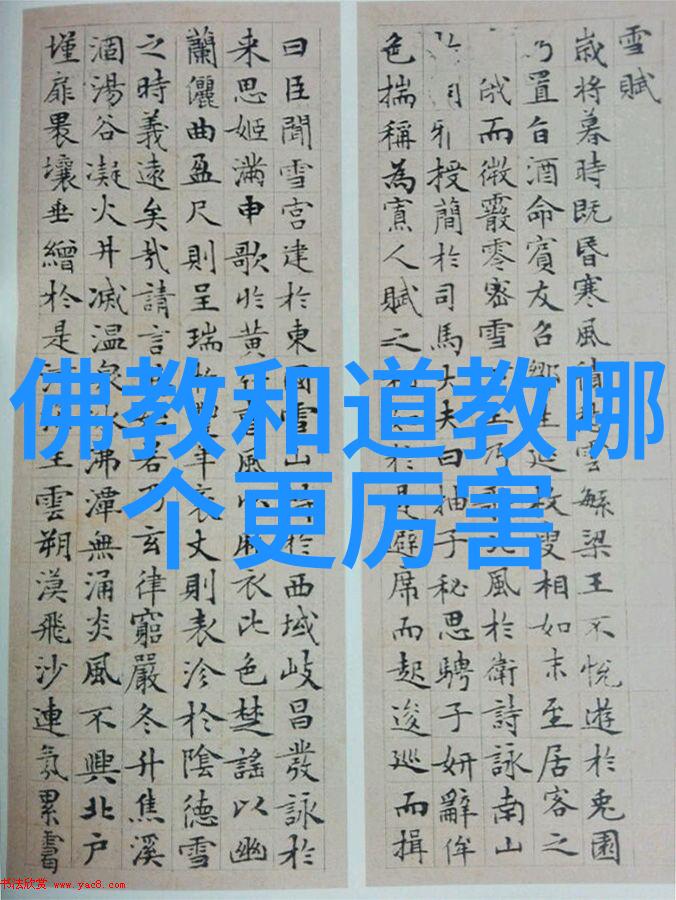 雪賦
歲將暮時既昏寒風積雲繁梁王不悅遊於兔園
乃置旨酒命賓友召鄒生延枚叟相如末至居客之
俄而微霰零密雪王乃風於衛詩詠南山
雅授簡於司馬大夫曰抽子秘思騁子妍辭侔
色揣稱為寡人賦之於是避席而起逡巡而揖
曰臣聞雪宮建於東國雪山峙於西域岐昌發詠於
来思姬滿申歌於黃竹風以麻衣比色楚謠以幽
蘭儷曲盈尺則呈瑞於豐年袤丈則表沴於陰德雪
之時義遠矣哉請言其始若乃玄律窮嚴冬升焦溪
涸湯谷凝火井滅温泉冰沸潭無涌炎風不興北户
墐扉裸壤垂繒於是河生雲朔漠飛沙連氛累靄
佛教和道教哪
个更厉害
书法欣赏 www.yac8.com